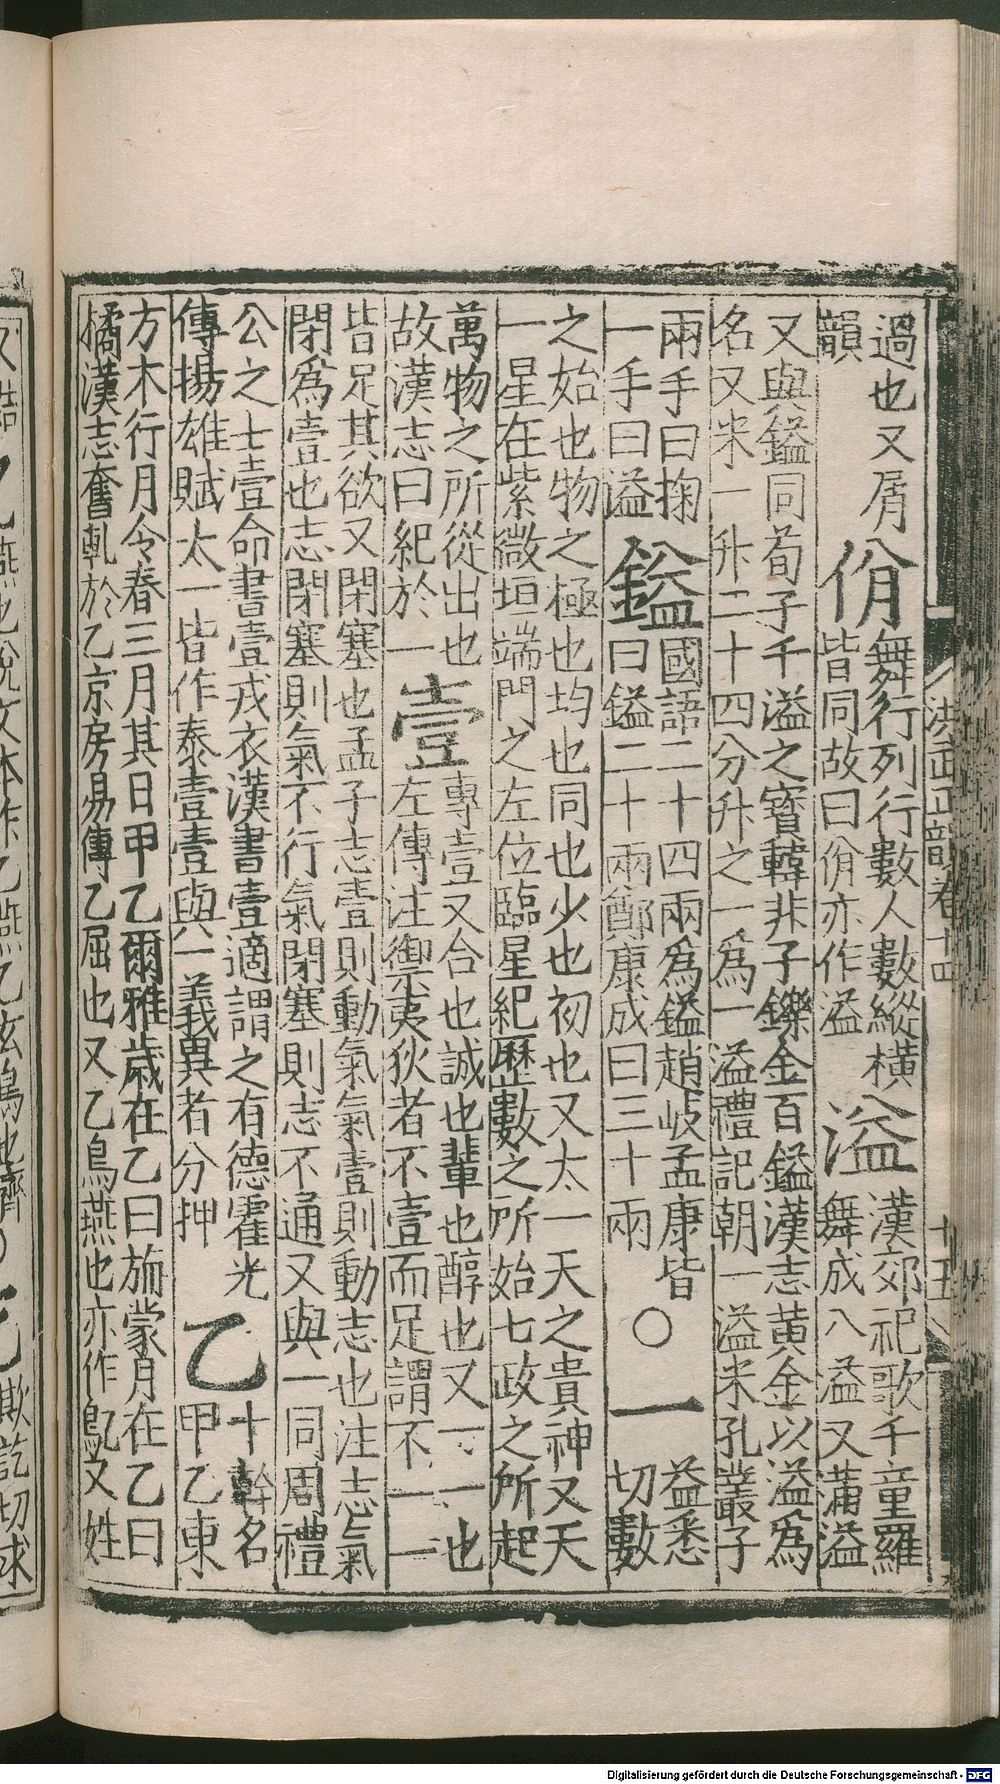 過也又屑
韻
佾
舞行列行數人數縱橫
皆同故曰佾亦作溢
溢
漢郊祀歌千童羅
舞成八溢又滿溢
又與鎰同荀子千溢之寶韓非子鑠金百鎰漢志黃金以溢爲
名又米一升二十四分升之一爲一溢禮記朝一溢米孔叢子
兩手曰掬
一手曰溢
鎰
國語二十四兩爲鎰趙岐孟康皆
曰鎰二十兩鄭康成曰三十兩
○
一
益悉
切數
之始也物之極也均也同也少也初也又太一天之貴神又天
一星在紫微垣端門之左位臨星紀歷數之所始七政之所起
萬物之所從出也
故漢志曰紀於一
壹
專壹又合也誠也輩也醇也又一一也
左傳注禦夷狄者不壹而足謂不一一
皆足其欲又閉塞也孟子志壹則動氣氣壹則動志也注志氣
閉爲壹也志閉塞則氣不行氣閉塞則志不通又與一同周禮
公之士壹命書壹戎衣漢書壹適謂之有德霍光
傳揚雄賦太一皆作泰壹壹與一義異者分押
乙
十幹名
甲乙東
方木行月令春三月其日甲乙爾雅歲在乙曰旃蒙月在乙曰
橘漢志奮軋於乙京房易傳乙屈也又乙鳥燕也亦作鳦又姓
洪武正韻卷十四
廿五
Digitalisierung gefördert durch die Deutsche Forschungsgemeinschaft - DFG